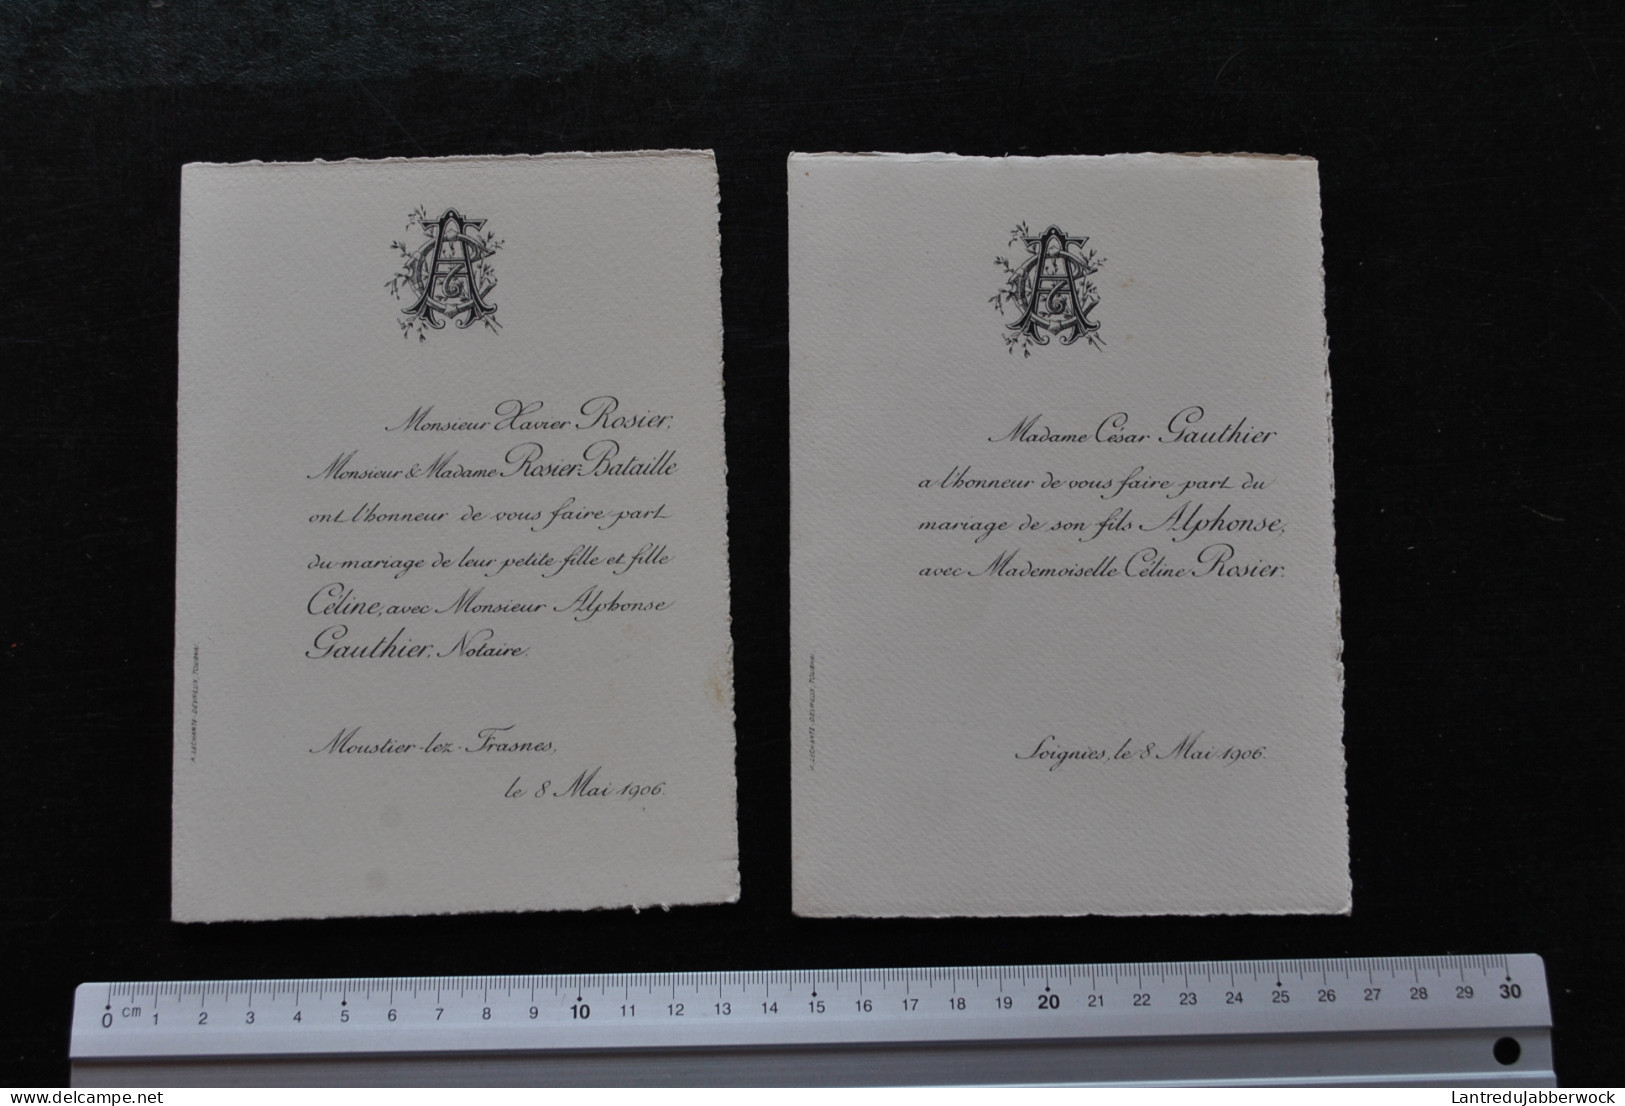 Monsieur Xavier Rosier,
Monsieur & Madame Rosier-Bataille
ont l'honneur de vous faire part
du mariage de leur petite-fille et fille
Céline, avec Monsieur Alphonse
Gauthier, Notaire.
Moustier-lez-Frasnes,
le 8 Mai 1906.
A. LECHANTE-DEVREUX, TOURNAI
Madame César Gauthier
a l'honneur de vous faire part du
mariage de son fils Alphonse,
avec Mademoiselle Céline Rosier.
Soignies, le 8 Mai 1906.
A. LECHANTE-DEVREUX, TOURNAI
0 cm 1 2 3 4 5 6 7 8 9 10 11 12 13 14 15 16 17 18 19 20 21 22 23 24 25 26 27 28 29 30
LantreduJabberwock
delcampe.net